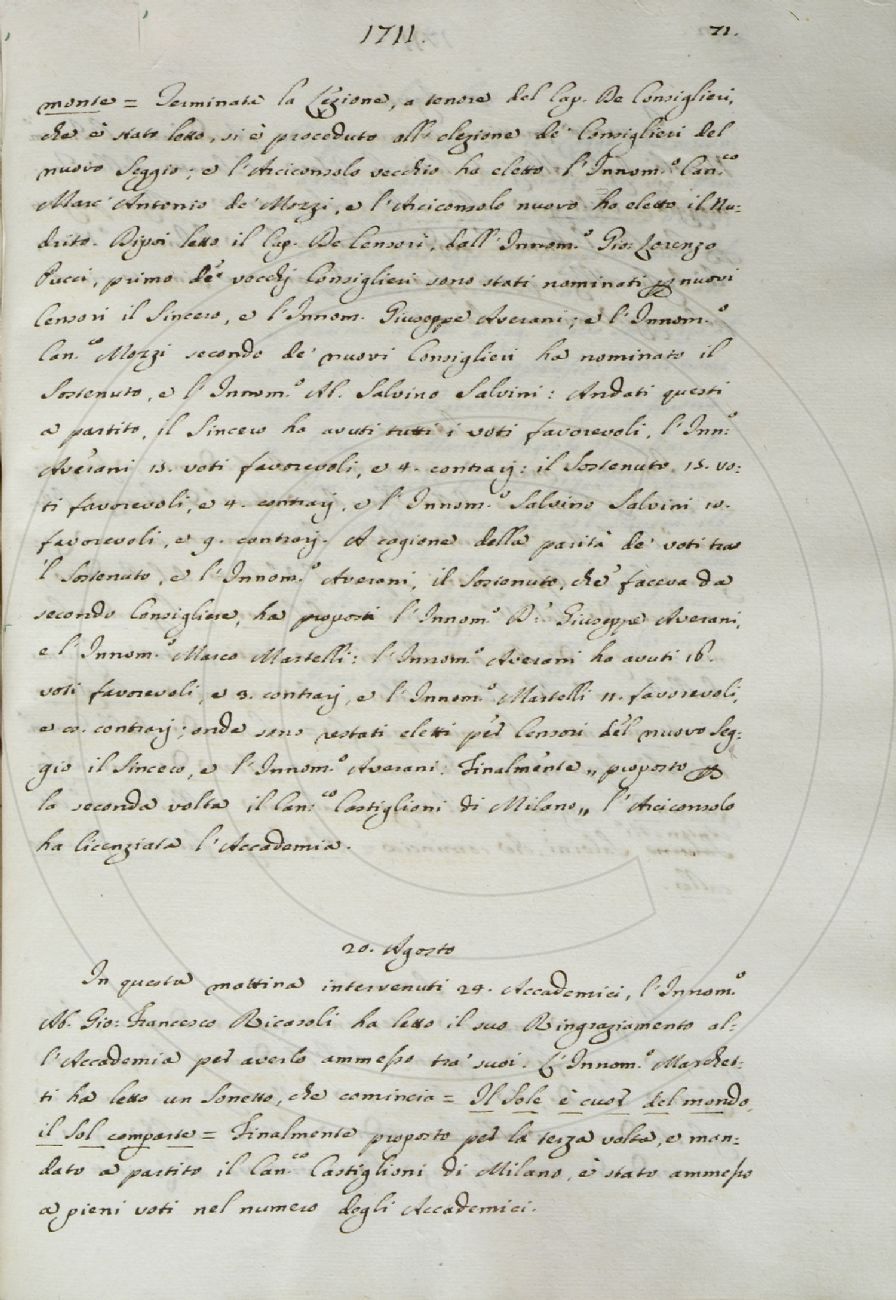 1711.
71.
monte = Terminata la Lezione, a tenore del Cap. De Consiglieri,
che è stato letto, si è proceduto all' elezione de' Consiglieri del
nuovo Seggio; e l'Arciconsolo vecchio ha eletto l'Innom.º Can.co
Marc' Antonio de' Mozzi, e l'Arciconsolo nuovo ha eletto il Nu-
drito. Dipoi letto il Cap. De Censori, dall' Innom.º Gio: Lorenzo
Pucci, primo de' vecchj Consiglieri sono stati nominati p nuovi
Censori il Sincero, e l'Innom. Giuseppe Averani; e l'Innom.º
Can.co Mozzi secondo de' nuovi Consiglieri ha nominato il
Sostenuto, e l'Innom.º Ab. Salvino Salvini: Andati questi
a partito, il Sincero ha avuti tutti i voti favorevoli, l'Inn:º
Averani 15. voti favorevoli, e 4. contrarj: il Sostenuto 15. vo:
ti favorevoli, e 4. contrarj, e l'Innom.º Salvino Salvini 10.
favorevoli, e 9. contrarj. A cagione della parità de' voti tra
'l Sostenuto, e l'Innom.º Averani, il Sostenuto, che faceva da
secondo Consigliere, ha proposti l'Innom.º D.r Giuseppe Averani,
e l'Innom.º Marco Martelli: l'Innom.º Averani ha avuti 16.
voti favorevoli, e 3. contrarj, e l'Innom.º Martelli 11. favorevoli,
e contrarj; onde sono restati eletti per Censori del nuovo Seg:
gio il Sincero, e l'Innom.º Averani: Finalmente „ proposto p
la seconda volta il Can.co Castiglioni di Milano „ l'Arciconsolo
ha licenziata l'Accademia.
20. Agosto
In questa mattina intervenuti 24. Accademici, l'Innom.º
Ab. Gio: Francesco Ricasoli ha letto il suo Ringraziamento al:
l'Accademia per averlo ammesso tra' suoi. L'Innom.º Marchet:
ti ha letto un Sonetto, che comincia = Il Sole è cuor del mondo,
il Sol comparte = Finalmente proposto per la terza volta, e man:
dato a partito il Can.co Castiglioni di Milano, è stato ammesso
a pieni voti nel numero degli Accademici.